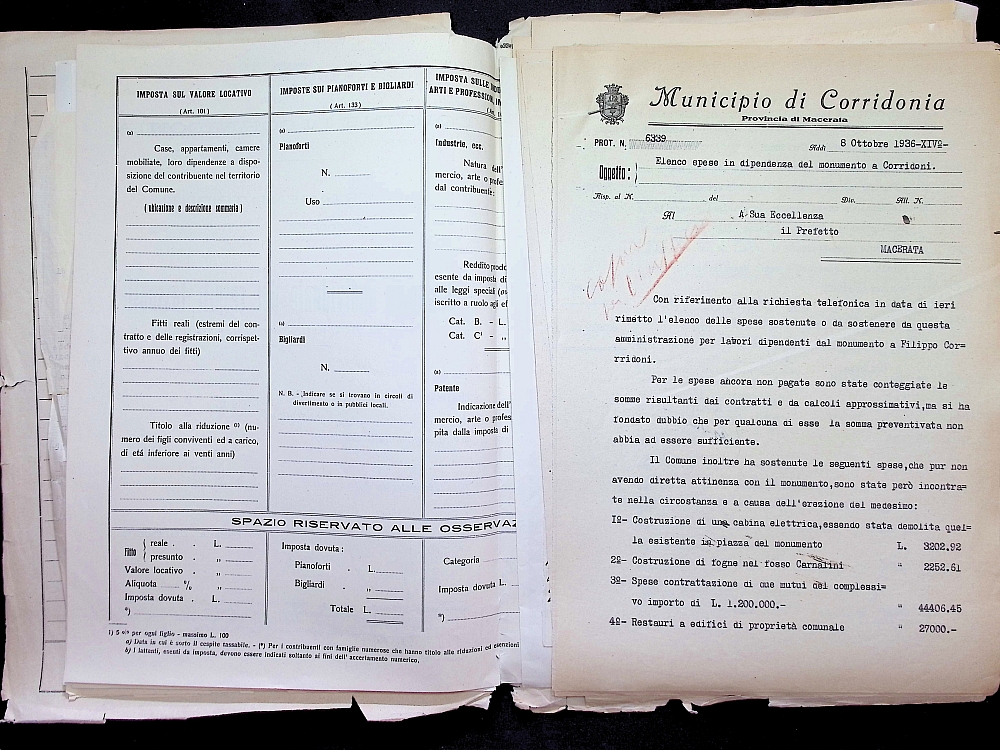 IMPOSTA SUL VALORE LOCATIVO
(Art. 101)
(a)
Case, appartamenti, camere
mobiliate, loro dipendenze a dispo-
sizione del contribuente nel territorio
del Comune.
( ubicazione e descrizione sommaria )
Fitti reali (estremi del con-
tratto e delle registrazioni, corrispet-
tivo annuo dei fitti)
Titolo alla riduzione (nu-
mero dei figli conviventi ed a carico,
di etá inferiore ai venti anni)
IMPOSTE SUI PIANOFORTI E BIGLIARDI
(Art. 133)
(a)
Pianoforti
N.
Uso
(a)
Bigliardi
N.
N. B. - Indicare se si trovano in circoli di
divertimento o in pubblici locali.
IMPOSTA SULLE
ARTI E PROFESSIONI,
(a)
Industrie, ecc.
Natura dell'
mercio, arte o profes
dal contribuente:
Reddito prodo
esente da imposta di
alle leggi speciali
iscritto a ruolo agli ef
Cat. B. - L.
Cat. C' - „
(a)
Patente
Indicazione dell'
mercio, arte o profes
pita dalla imposta di
SPAZIO RISERVATO ALLE OSSERVAZ
Fitto
reale . L.
presunto . „
Valore locativo . „
Aliquota . % „
Imposta dovuta . L.
*)
Imposta dovuta :
Pianoforti . L.
Bigliardi . „
Totale L.
Categoria
Imposta dovuta L.
*)
1) 5 o/o per ogni figlio - massimo L. 100
a) Data in cui è sorto il cespite tassabile. - (*) Per i contribuenti con famiglie numerose che hanno titolo alle riduzioni ed esenzioni
b) I lattanti, esenti da imposta, devono essere indicati soltanto ai fini dell' accertamento numerico.
Municipio di Corridonia
Provincia di Macerata
PROT. N. 6339
Addì 8 Ottobre 1936-XIVº-
Oggetto: Elenco spese in dipendenza del monumento a Corridoni.
Risp. al N. del Div. All. N.
Al A Sua Eccellenza
il Prefetto
MACERATA
Con riferimento alla richiesta telefonica in data di ieri
rimetto l'elenco delle spese sostenute o da sostenere da questa
amministrazione per labori dipendenti dal monumento a Filippo Cor=
rridoni.
Per le spese ancora non pagate sono state conteggiate le
somme risultanti dai contratti e da calcoli approssimativi,ma si ha
fondato dubbio che per qualcuna di esse la somma preventivata non
abbia ad essere sufficiente.
Il Comune inoltre ha sostenute le seguenti spese,che pur non
avendo diretta attinenza con il monumento,sono state però incontra=
te nella circostanza e a causa dell'erezione del medesimo:
Iº- Costruzione di una cabina elettrica,essendo stata demolita quel=
la esistente in piazza del monumento L. 3202.92
2º- Costruzione di fogne nel fosso Carnalini " 2252.61
3º- Spese contrattazione di due mutui del complessi=
vo importo di L. 1.200.000.- " 44406.45
4º- Restauri a edifici di proprietà comunale " 27000.-